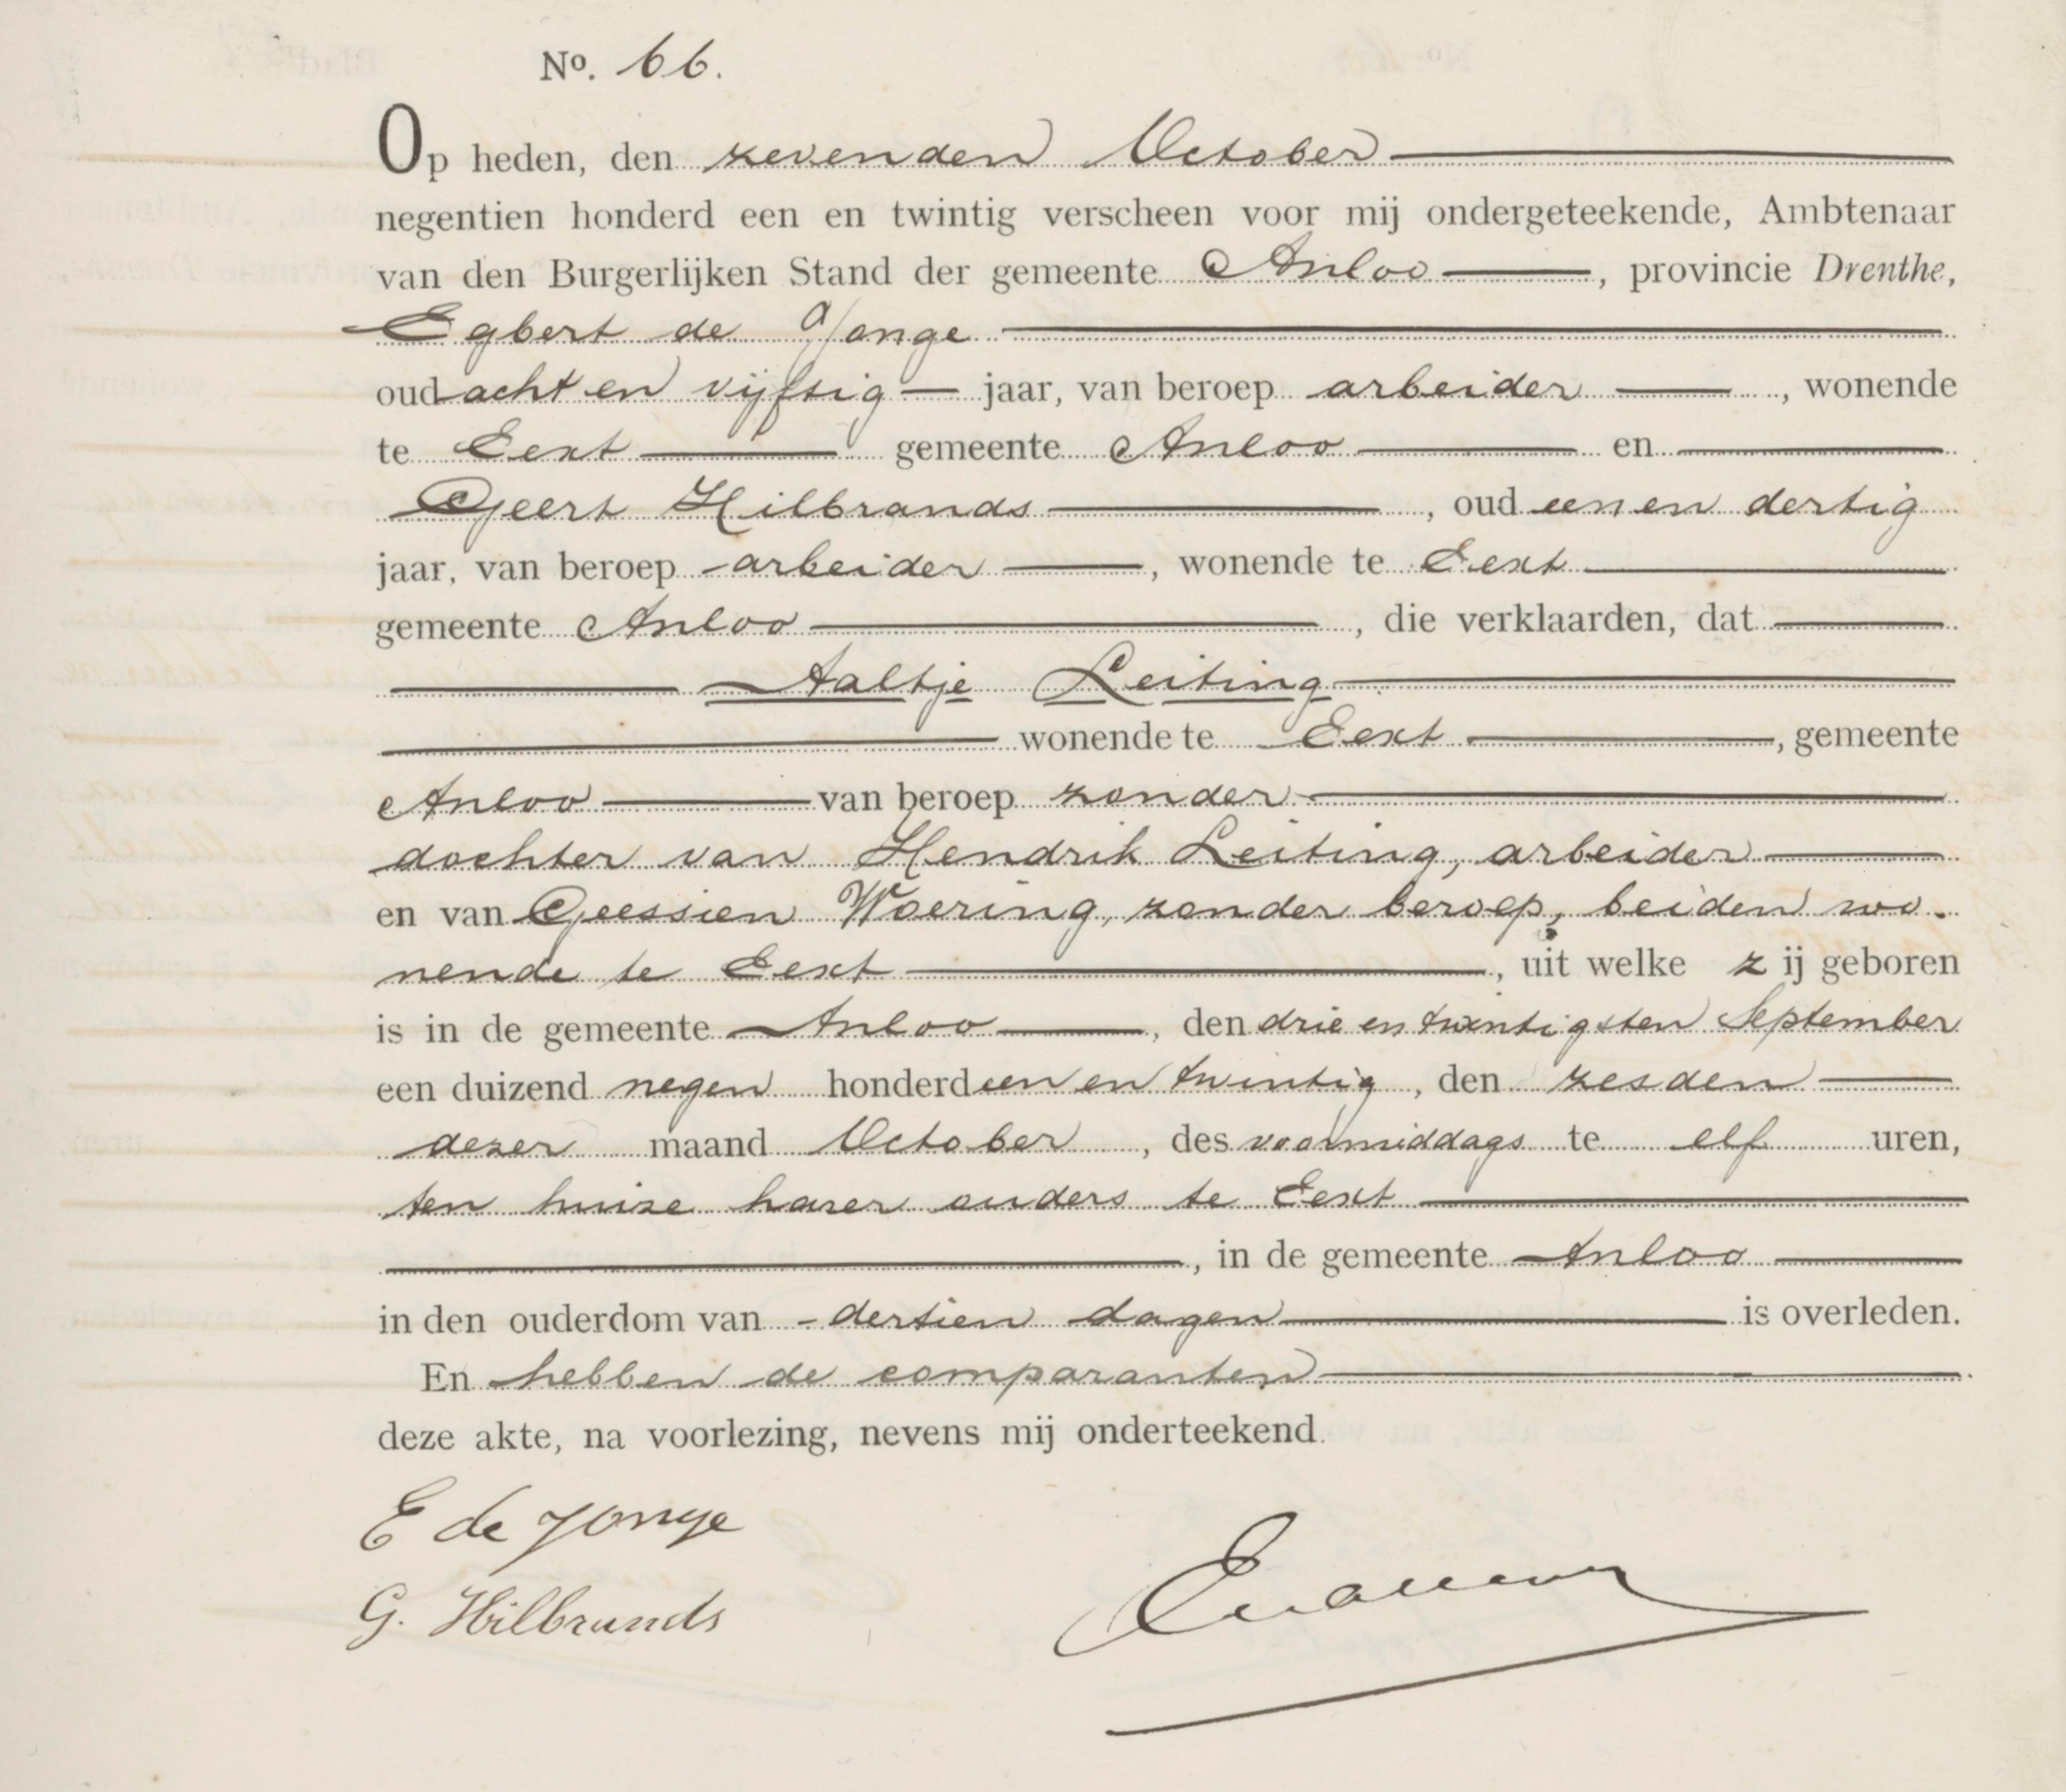 No. 66.
Op heden, den zevenden October
negentien honderd een en twintig verscheen voor mij ondergeteekende, Ambtenaar
van den Burgerlijken Stand der gemeente Anloo, provincie Drenthe,
Egbert de Jonge
oud acht en vijftig jaar, van beroep arbeider, wonende
te Eext gemeente Anloo en
Geert Hilbrands, oud een en dertig
jaar, van beroep arbeider, wonende te Eext
gemeente Anloo, die verklaarden, dat
Aaltje Leiting
wonende te Eext, gemeente
Anloo van beroep zonder
dochter van Hendrik Leiting, arbeider
en van Geessien Woering, zonder beroep, beiden wo-
nende te Eext, uit welke zij geboren
is in de gemeente Anloo, den drie en twintigsten September
een duizend negen honderd een en twintig, den zesden
dezer maand October, des voormiddags te elf uren,
ten huize harer ouders te Eext
, in de gemeente Anloo
in den ouderdom van dertien dagen is overleden.
En hebben de comparanten
deze akte, na voorlezing, nevens mij onderteekend.
E de Jonge
G. Hilbrands